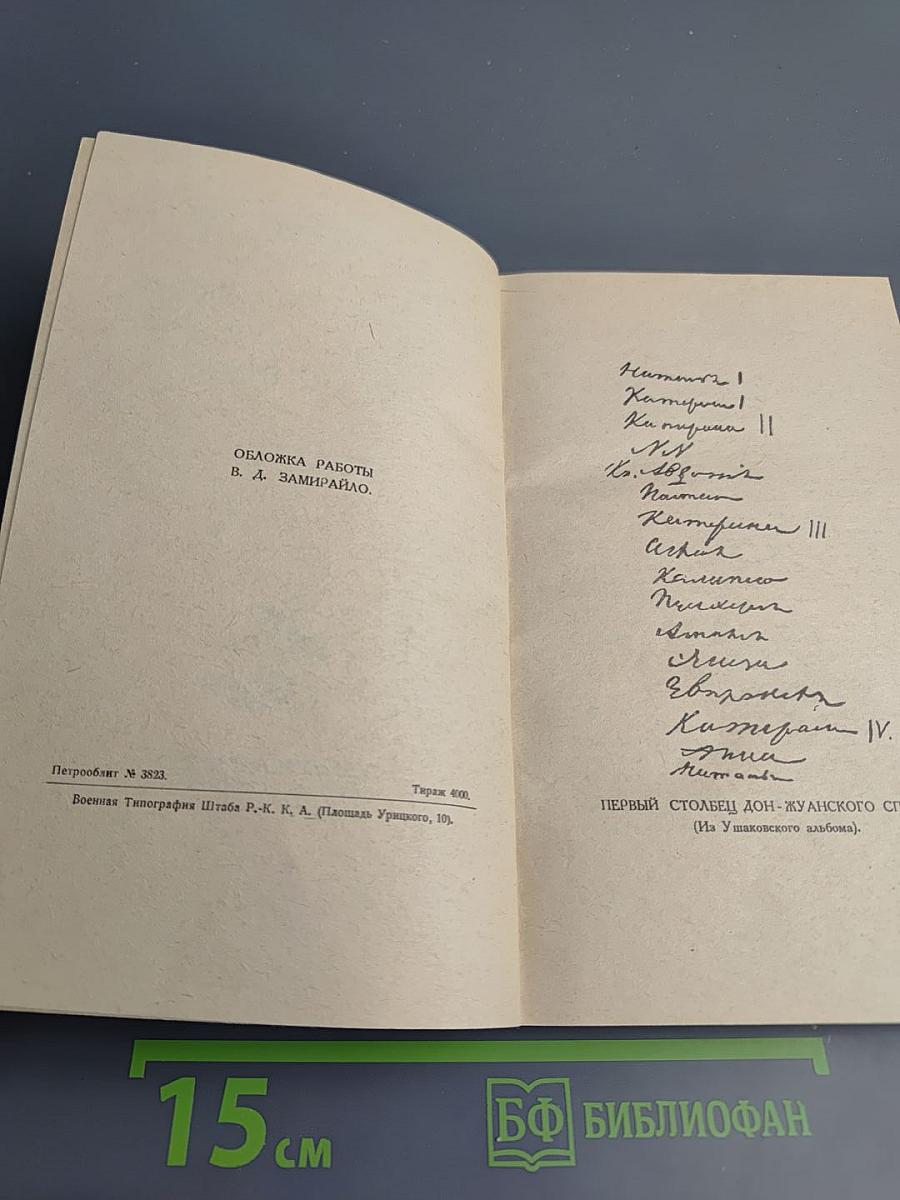 ОБЛОЖКА РАБОТЫ
В. Д. ЗАМИРАЙЛО.
Петрооблит № 3823.
Тираж 4000.
Военная Типография Штаба Р.-К. К. А. (Площадь Урицкого, 10).
Наталья I
Катерина I
Катерина II
NN
Кн. Авдотия
Настасья
Катерина III
Аглая
Калипсо
Пульхерия
Амалия
Элиза
Евпраксея
Катерина IV.
Анна
Наталья
ПЕРВЫЙ СТОЛБЕЦ ДОН-ЖУАНСКОГО
(Из Ушаковского альбома).
15 см
БФ БИБЛИОФАН